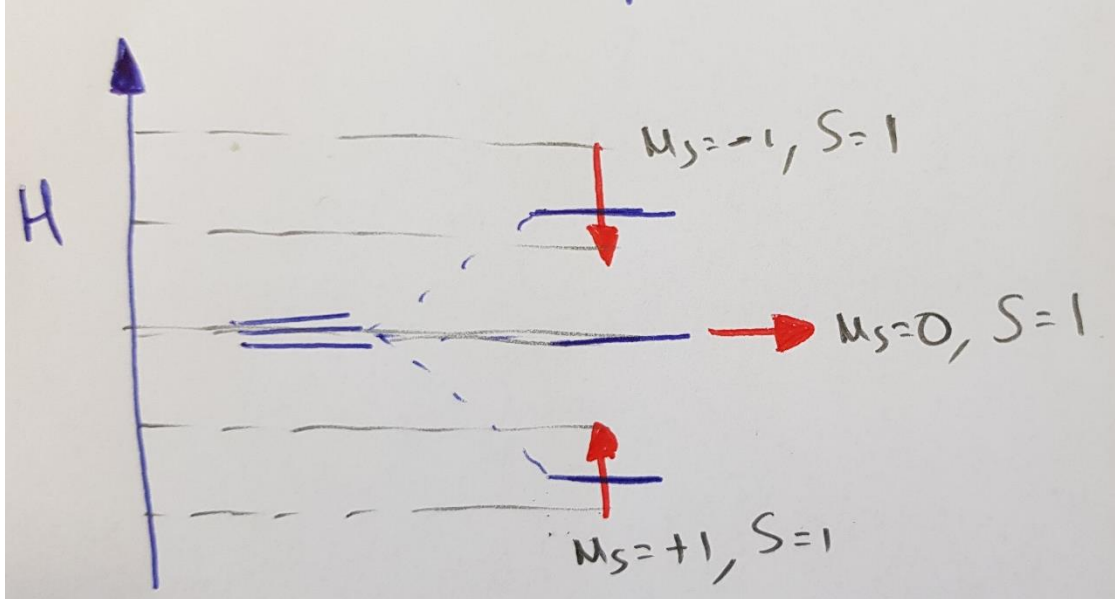 Ms=-1, S=1
H
Ms=0, S=1
Ms=+1, S=1